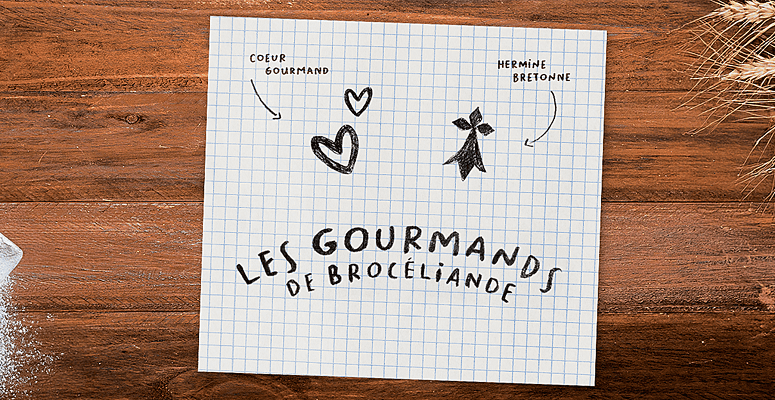 COEUR
GOURMAND
HERMINE
BRETONNE
LES GOURMANDS
DE BROCÉLIANDE